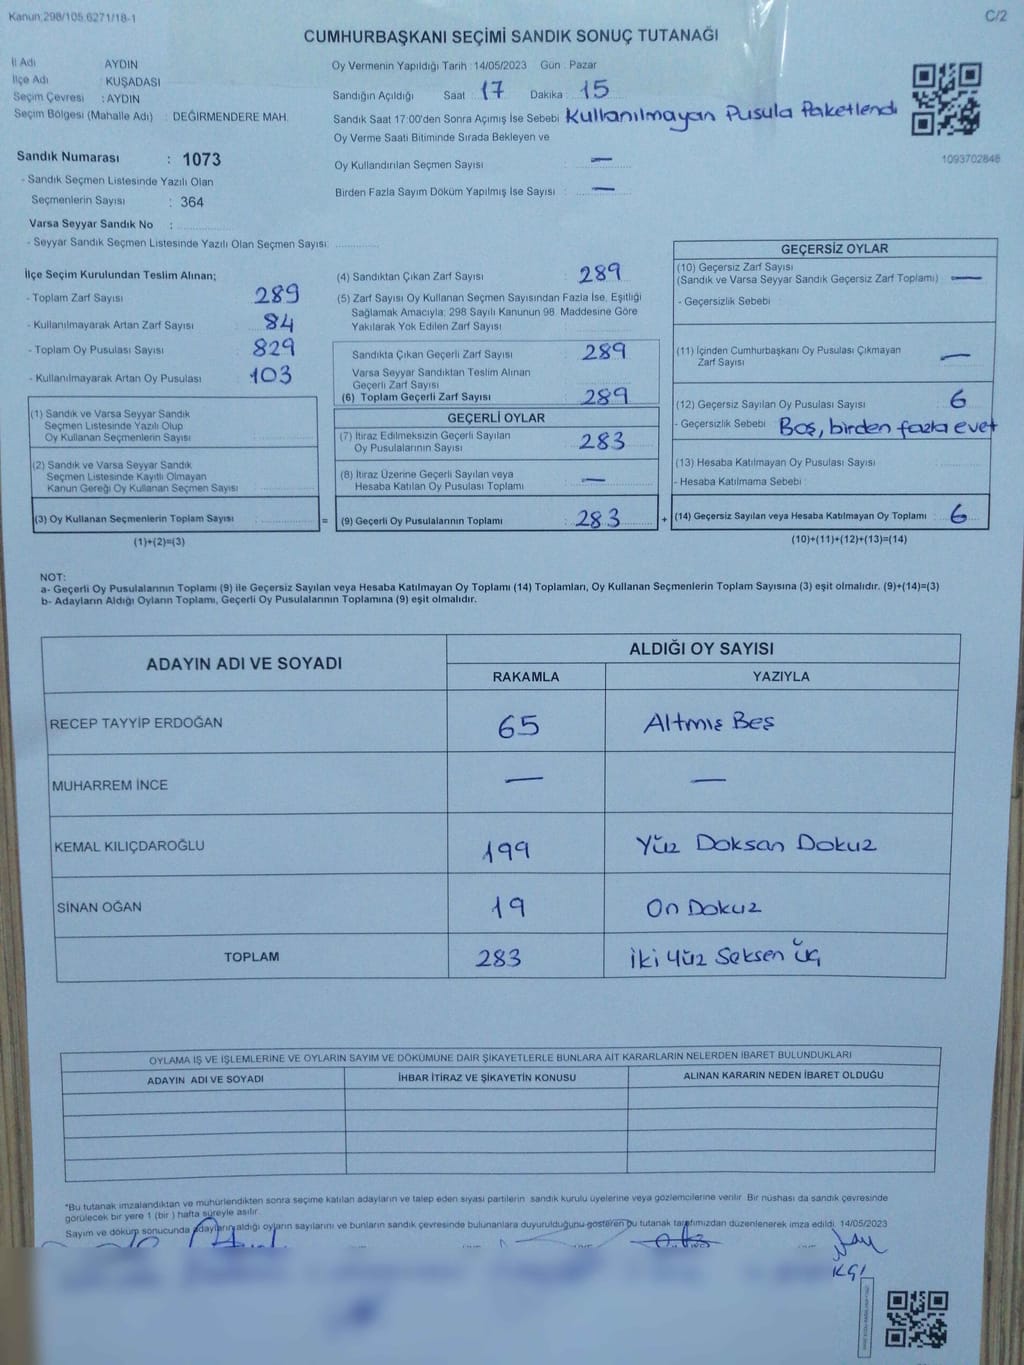 Kanun.298/105.6271/18-1
C/2
CUMHURBAŞKANI SEÇİMİ SANDIK SONUÇ TUTANAĞI
İl Adı AYDIN
İlçe Adı : KUŞADASI
Seçim Çevresi : AYDIN
Seçim Bölgesi (Mahalle Adı) : DEĞİRMENDERE MAH.
Sandık Numarası : 1073
- Sandık Seçmen Listesinde Yazılı Olan
Seçmenlerin Sayısı : 364
Varsa Seyyar Sandık No :
- Seyyar Sandık Seçmen Listesinde Yazılı Olan Seçmen Sayısı:
Oy Vermenin Yapıldığı Tarih :14/05/2023 Gün : Pazar
Sandığın Açıldığı Saat : 17 Dakika : 15
Sandık Saat 17:00'den Sonra Açımış İse Sebebi Kullanılmayan Pusula Paketlendi
Oy Verme Saati Bitiminde Sırada Bekleyen ve
Oy Kullandırılan Seçmen Sayısı : —
Birden Fazla Sayım Döküm Yapılmış İse Sayısı : —
1093702848
İlçe Seçim Kurulundan Teslim Alınan;
- Toplam Zarf Sayısı 289
- Kullanılmayarak Artan Zarf Sayısı 84
- Toplam Oy Pusulası Sayısı 829
- Kullanılmayarak Artan Oy Pusulası : 103
(1) Sandık ve Varsa Seyyar Sandık
Seçmen Listesinde Yazılı Olup
Oy Kullanan Seçmenlerin Sayısı
(2) Sandık ve Varsa Seyyar Sandık
Seçmen Listesinde Kayıtlı Olmayan
Kanun Gereği Oy Kullanan Seçmen Sayısı
(3) Oy Kullanan Seçmenlerin Toplam Sayısı =
(1)+(2)=(3)
(4) Sandıktan Çıkan Zarf Sayısı : 289
(5) Zarf Sayısı Oy Kullanan Seçmen Sayısından Fazla İse, Eşitliği
Sağlamak Amacıyla; 298 Sayılı Kanunun 98. Maddesine Göre
Yakılarak Yok Edilen Zarf Sayısı :
Sandıkta Çıkan Geçerli Zarf Sayısı : 289
Varsa Seyyar Sandıktan Teslim Alınan
Geçerli Zarf Sayısı
(6) Toplam Geçerli Zarf Sayısı : 289
GEÇERLİ OYLAR
(7) İtiraz Edilmeksizin Geçerli Sayılan
Oy Pusulalarının Sayısı : 283
(8) İtiraz Üzerine Geçerli Sayılan veya
Hesaba Katılan Oy Pusulası Toplamı : —
(9) Geçerli Oy Pusulalarının Toplamı : 283 +
GEÇERSİZ OYLAR
(10) Geçersiz Zarf Sayısı
(Sandık ve Varsa Seyyar Sandık Geçersiz Zarf Toplamı) : —
- Geçersizlik Sebebi :
(11) İçinden Cumhurbaşkanı Oy Pusulası Çıkmayan
Zarf Sayısı : —
(12) Geçersiz Sayılan Oy Pusulası Sayısı : 6
- Geçersizlik Sebebi : Boş, birden fazla evet
(13) Hesaba Katılmayan Oy Pusulası Sayısı :
- Hesaba Katılmama Sebebi :
(14) Geçersiz Sayılan veya Hesaba Katılmayan Oy Toplamı : 6
(10)+(11)+(12)+(13)=(14)
NOT:
a- Geçerli Oy Pusulalarının Toplamı (9) ile Geçersiz Sayılan veya Hesaba Katılmayan Oy Toplamı (14) Toplamları, Oy Kullanan Seçmenlerin Toplam Sayısına (3) eşit olmalıdır. (9)+(14)=(3)
b- Adayların Aldığı Oyların Toplamı, Geçerli Oy Pusulalarının Toplamına (9) eşit olmalıdır.
ADAYIN ADI VE SOYADI
ALDIĞI OY SAYISI
RAKAMLA YAZIYLA
RECEP TAYYİP ERDOĞAN 65 Altmış Beş
MUHARREM İNCE — —
KEMAL KILIÇDAROĞLU 199 Yüz Doksan Dokuz
SİNAN OĞAN 19 On Dokuz
TOPLAM 283 İki Yüz Seksen Üç
OYLAMA İŞ VE İŞLEMLERİNE VE OYLARIN SAYIM VE DÖKÜMÜNE DAİR ŞİKAYETLERLE BUNLARA AİT KARARLARIN NELERDEN İBARET BULUNDUKLARI
ADAYIN ADI VE SOYADI İHBAR İTİRAZ VE ŞİKAYETİN KONUSU ALINAN KARARIN NEDEN İBARET OLDUĞU
*Bu tutanak imzalandıktan ve mühürlendikten sonra seçime katılan adayların ve talep eden siyasi partilerin sandık kurulu üyelerine veya gözlemcilerine verilir. Bir nüshası da sandık çevresinde
görülecek bir yere 1 (bir ) hafta süreyle asılır.
Sayım ve döküm sonucunda adayların aldığı oyların sayılarını ve bunların sandık çevresinde bulunanlara duyurulduğunu gösteren bu tutanak tarafımızdan düzenlenerek imza edildi. 14/05/2023